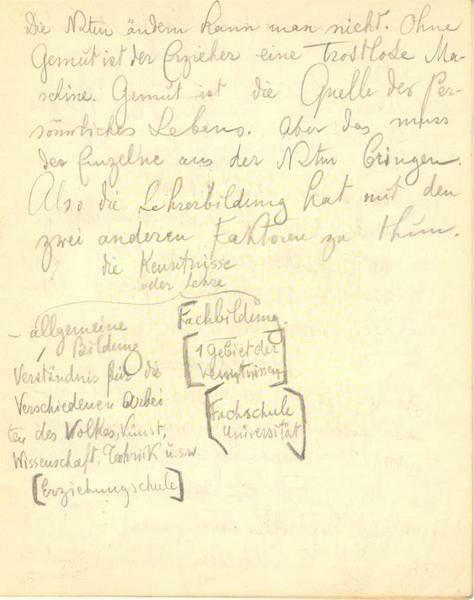 Die Natur ändern kann man nicht. Ohne
Gemüt ist der Erzieher eine Trostlose Ma-
schine. Gemüt ist die Quelle der Per-
sönnliches Lebens. Aber das muss
der Einzelne aus der Natur bringen.
Also die Lehrerbildung hat mit den
zwei anderen Faktoren zu thun.
die Kenntnisse
oder Lehre
- allgemeine
Bildung
Verständnis für die
Verschiedenen Arbei
ten des Volkes, Kunst,
Wissenschaft, u.s.w
[Erziehungschule]
Fachbildung.
[1 Gebiet der
Kenntnissen]
[Fachschule
Universität]